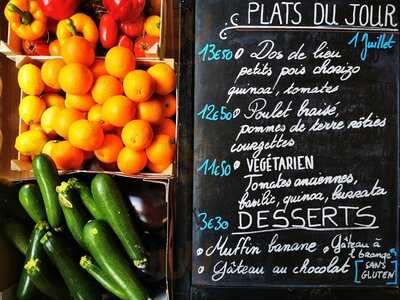 PLATS DU JOUR
1 Juillet
13€50 Dos de lieu
petits pois chorizo
quinoa, tomates
12€50 Poulet braisé,
pommes de terre rôties
courgettes
11€50 VÉGÉTARIEN
Tomates anciennes,
basilic, quinoa, burrata
3€30 DESSERTS
Muffin banane Gâteau à
l'orange
Gâteau au chocolat [SANS
GLUTEN]